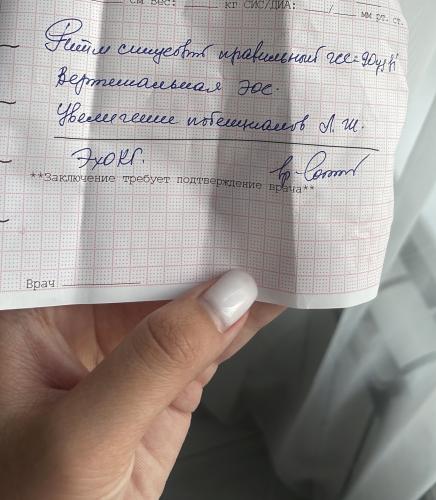 см Вес: ___ кг СИС/ДИА: ___/___ мм рт. ст.
Ритм синусовый правильный чсс=90уд/'
Вертикальная ЭОС.
Увеличение потенциалов Л.Ж.
ЭхоКГ. вр-
**Заключение требует подтверждение врача**
Врач